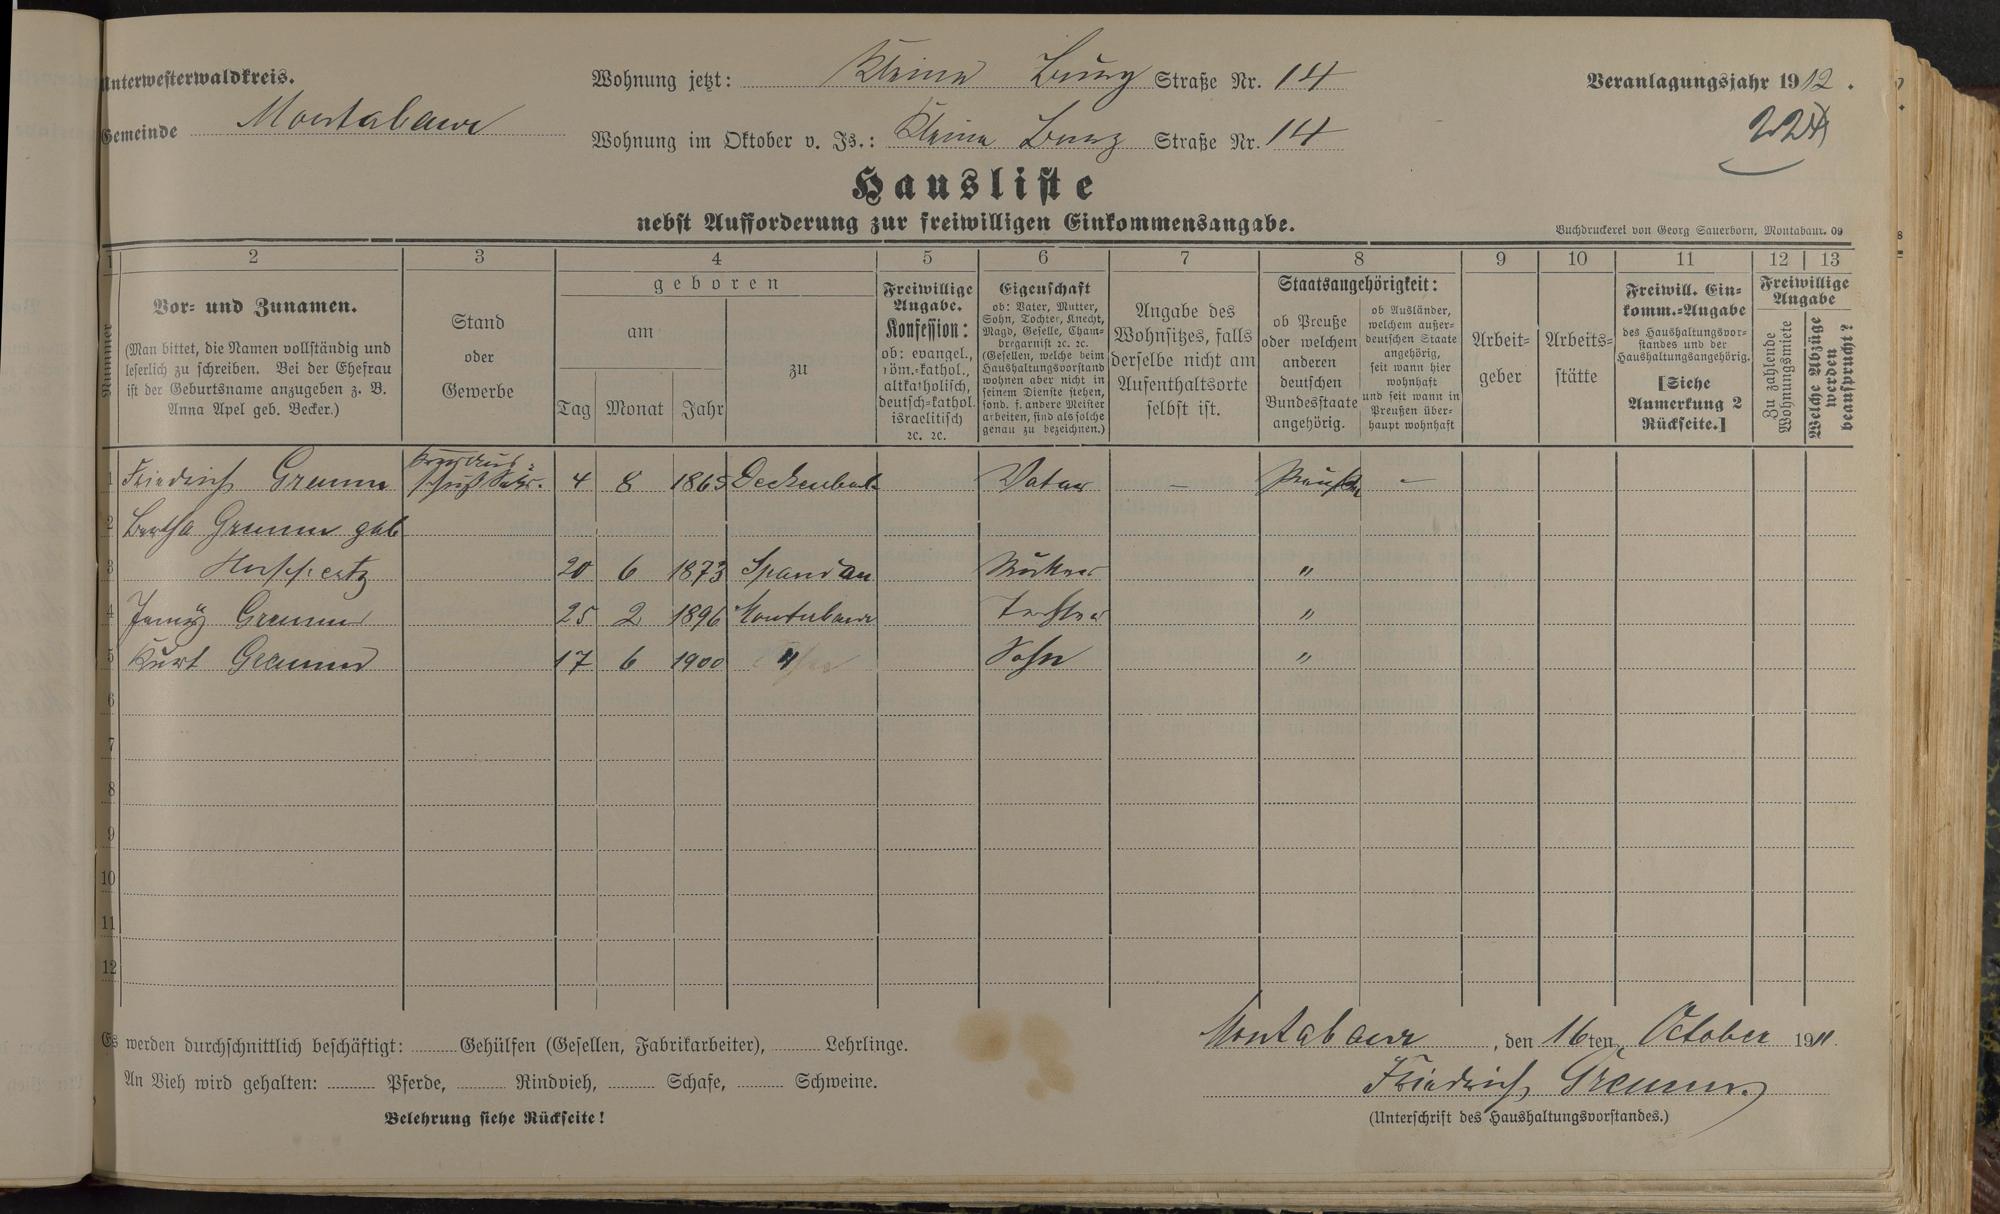 Unterwesterwaldkreis.
Wohnung jetzt: Kleine Burg Straße Nr. 14
Veranlagungsjahr 1912.
Gemeinde Montabaur
Wohnung im Oktober v. Js.: Kleine Burg Straße Nr. 14
Hausliste
nebst Aufforderung zur freiwilligen Einkommensangabe.
Buchdruckerei von Georg Sauerborn, Montabaur. 09
1 2 3 4 5 6 7 8 9 10 11 12 13
Nummer
Vor- und Zunamen.
(Man bittet, die Namen vollständig und
leserlich zu schreiben. Bei der Ehefrau
ist der Geburtsname anzugeben z. B.
Anna Apel geb. Becker.)
Stand
oder
Gewerbe
geboren
am
Tag Monat Jahr
zu
Freiwillige
Angabe.
Konfession:
ob: evangel.,
röm.-kathol.,
altkatholisch,
deutsch-kathol.
israelitisch
ec. ec.
Eigenschaft
ob: Vater, Mutter,
Sohn, Tochter, Knecht,
Magd, Geselle, Cham-
bregarnist ec. ec.
(Gesellen, welche beim
Haushaltungsvorstand
wohnen aber nicht in
seinem Dienste stehen,
sond. f. andere Meister
arbeiten, sind als solche
genau zu bezeichnen.)
Angabe des
Wohnsitzes, falls
derselbe nicht am
Aufenthaltsorte
selbst ist.
Staatsangehörigkeit:
ob Preuße
oder welchem
anderen
deutschen
Bundesstaate
angehörig.
ob Ausländer,
welchem außer-
deutschen Staate
angehörig,
seit wann hier
wohnhaft
und seit wann in
Preußen über-
haupt wohnhaft
Arbeit-
geber
Arbeits-
stätte
Freiwill. Ein-
komm.-Angabe
des Haushaltungsvor-
standes und der
Haushaltungsangehörig.
[Siehe
Anmerkung 2
Rückseite.]
Freiwillige
Angabe
Zu zahlende
Wohnungsmiete
Welche Abzüge
werden
beansprucht?
1 Friedrich Gramm 4 8 1865 Vater — Preuße —
2 Bertha Gramm geb
3 20 6 1873 Spandau Mutter "
4 Gramm 25 2 1896 Montabaur Tochter "
5 Kurt Gramm 17 6 1900 " Sohn "
6
7
8
9
10
11
12
Es werden durchschnittlich beschäftigt: Gehülfen (Gesellen, Fabrikarbeiter), Lehrlinge.
Montabaur, den 16ten October 1911.
An Vieh wird gehalten: Pferde, Rindvieh, Schafe, Schweine.
Friedrich Gramm.
Belehrung siehe Rückseite!
(Unterschrift des Haushaltungsvorstandes.)